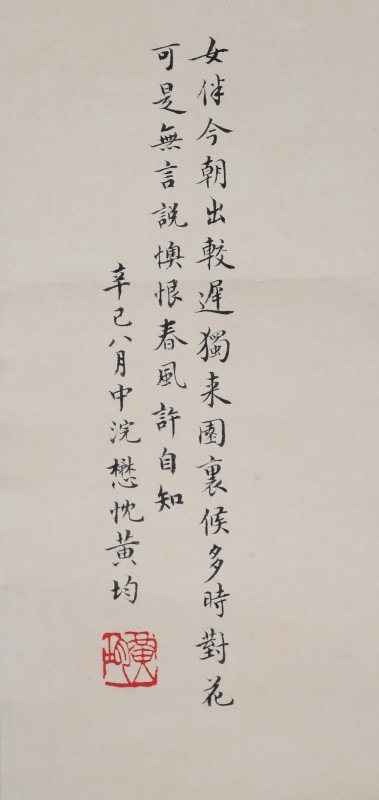 女伴今朝出較遲獨来園裏候多時對花
可是無言説懊恨春風許自知
辛巳八月中浣懋忱黃均
黃均